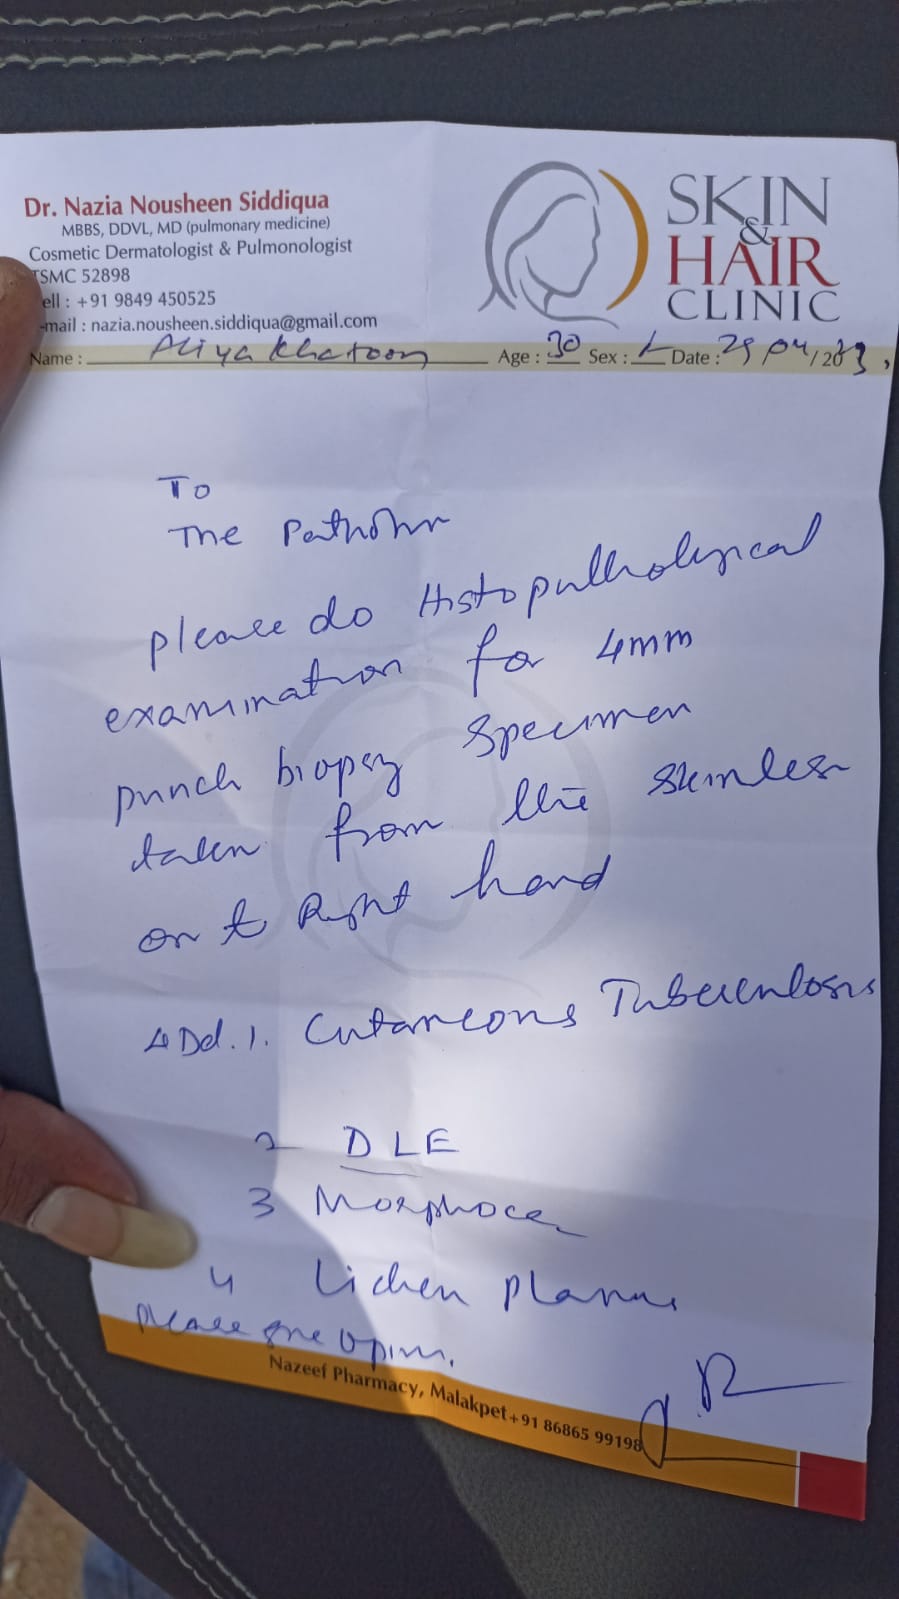 Dr. Nazia Nousheen Siddiqua
MBBS, DDVL, MD (pulmonary medicine)
Cosmetic Dermatologist & Pulmonologist
TSMC 52898
ell : +91 9849 450525
-mail : nazia.nousheen.siddiqua@gmail.com
SKIN
&
HAIR
CLINIC
Name : Aliya Khatoon Age : 30 Sex : Date : 29 04/2023
To
The
please do Histopathological
examination for 4mm
punch biopsy specimen
taken from the
on Right hand
DD. 1. Cutaneous Tuberculosis
2 DLE
3 Morphoea
4 Lichen planus
please give opinion.
Nazeef Pharmacy, Malakpet +91 86865 99198